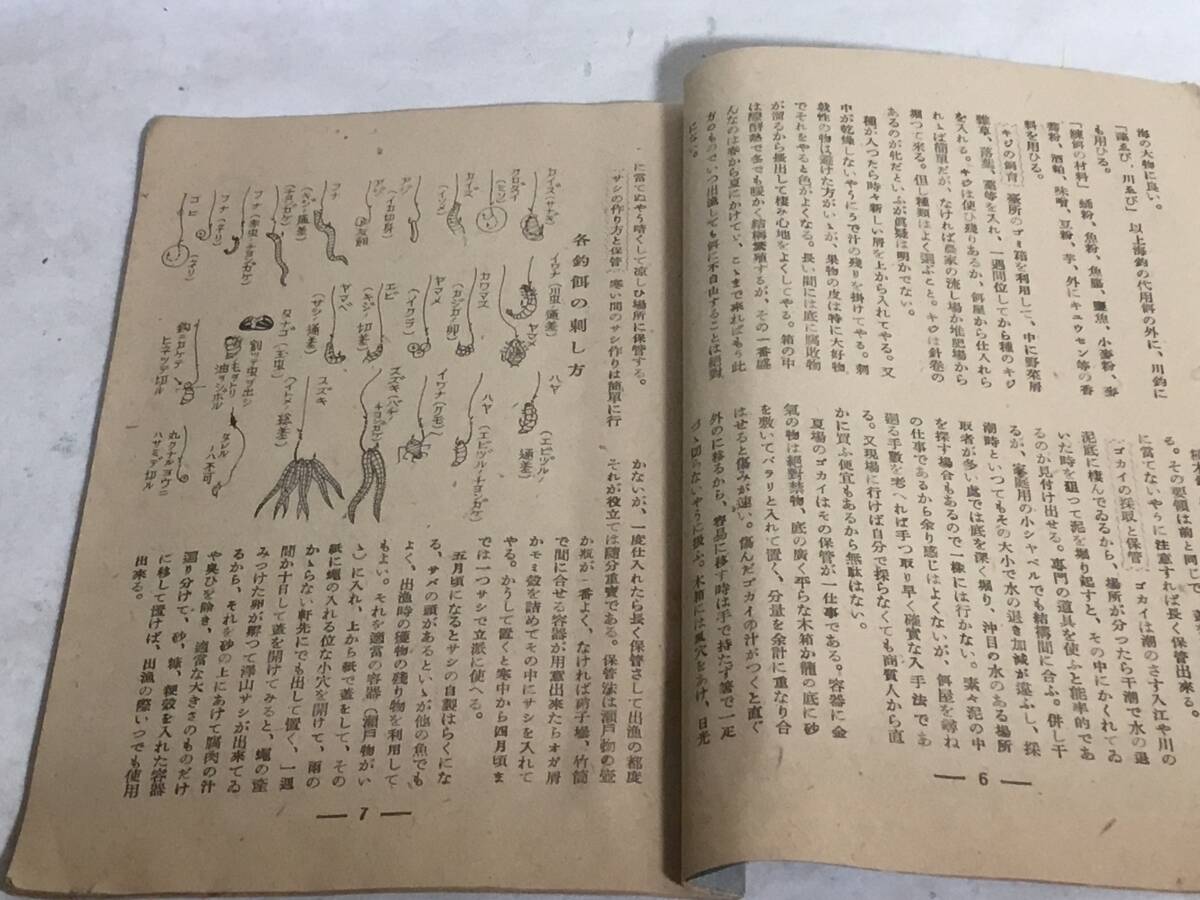 海の大物に良い。
「藻ゑび、川ゑび」以上海釣の代用餌の外に、川釣に
も用ひる。
「練餌の材料」蛹粉、魚粉、魚脇、鹽魚、小麥粉、麥
蕎粉、酒粕、味噌、豆粉、芋、外にキュウセン等の香
料を用ひる。
「キジの飼育」臺所のゴミ箱を利用して、中に野菜屑
雜草、落葉、藁等を入れ、一週間位してから種のキジ
を入れる。キジは使ひ殘りあるか、餌屋から仕入れら
れゝば簡單だが、なければ農家の流し場か堆肥場から
堀つて來る。但し種類はよく選ぶこと。キジは針卷の
あるのが牝だといふが眞疑は明かでない。
種が入つたら時々新しい屑を上から入れてやる。又
中が乾燥しないやうにうで汁の殘りを掛けてやる。刺
戟性の物は避けた方がいゝが、果物の皮は特に大好物
でそれをやると色がよくなる。長い間には底に腐敗物
が溜るから掻出して棲み心地をよくしてやる。箱の中
は醗酵熱で冬でも暖かく結構繁殖するが、その一番盛
んなのは春から夏にかけてゞ、こゝまで來ればもう此
方のものでいつ出漁しても餌に不自由することは絕對
にない。
る。その要領は前と同じで
に當てないやうに注意すれば長く保存出來る。
「ゴカイの採取と保管」ゴカイは潮のさす入江や川の
泥底に棲んでゐるから、場所が分つたら干潮で水の退
いた時を狙つて泥を堀り起すと、その中にかくれてゐ
るのが見付け出せる。專門の道具を使ふと能率的であ
るが、家庭用の小シャベルでも結構間に合ふ。併し干
潮時といつてもその大小で水の退き加減が違ふし、採
取者が多い處では底を深く堀り、沖目の水のある場所
を探す場合もあるので一樣には行かない。素々泥の中
の仕事であるから余り感じはよくないが、餌屋を尋ね
廻る手數を考へれば手つ取り早く確實な入手法であ
る。又現場に行けば自分で採らなくても商賣人から直
かに買ふ便宜もあるから無駄はない。
夏場のゴカイはその保管が一仕事である。容器に金
氣の物は絕對禁物、底の廣く平らな木箱か籠の底に砂
を敷いてバラリと入れて置く、分量を余計に重なり合
はせると傷みが速い。傷んだゴカイの汁がつくと直ぐ
外のに移るから、容易に移す時は手で持たず箸で一疋
切らないやうに扱ふ。木箱には風穴をあけ、日光
— 6 —
に當てぬやう暗くして凉しひ場所に保管する。
「サシの作り方と保管」寒い間のサシ作りは簡單に行
各釣餌の刺し方
カイズ（サナギ）
クロダイ（ミツ）
カイズ（イソメ）
ヤマベ（イカ切身）
フナ（キジ・通差）
フナ（赤虫・チヨンガケ）
フナ（ネリ）
コヒ（ネリ）
イワナ（川虫・通差）
ヤマメ
カワマス（カジカノ卵）
ヤマメ（イクラ）
エビ（キジ・切差）
ヤマベ（サシ・通差）
タナゴ（玉虫）
割ッテ虫ヲ出シ
毛ヲトリ
油ヲシボル
鈎ニカケテ
ヒネツテ切ル
タレル
ハ不可
丸クナルヨウニ
ハサミデ切ル
ハヤ（エビヅル・通差）
ハヤ（エビヅル・チヨンガケ）
イワナ（クモ）
スズキ（バチ・チヨンガケ）
スズキ（イトメ・塗差）
かないが、一度仕入れたら長く保管さして出漁の都度
それが役立ては隨分重寶である。保管法は瀨戶物の壺
か瓶が一番よく、なければ硝子壜、竹筒
で間に合せる容器が用意出來たらオガ屑
かモミ殼を詰めてその中にサシを入れて
やる。かうして置くと寒中から四月頃ま
では一つサシで立派に使へる。
五月頃になるとサシの自製はらくにな
る、サバの頭があるといゝが他の魚でも
よく、出漁時の獲物の殘り物を利用して
もよい。それを適當の容器（瀨戶物がい
ゝ）に入れ、上から紙で蓋をして、その
紙に蠅の入れる位な小穴を開けて、雨の
かゝらない軒先にでも出して置く、一週
間か十日して蓋を開けてみると、蠅の產
みつけた卵が孵つて澤山サシが出來てゐ
るから、それを砂の上にあけて腐肉の汁
や臭ひを除き、適當な大きさのものだけ
選り分けて、砂、糠、粳殼を入れた容器
に移して置けば、出漁の際いつでも使用
出來る。
— 7 —